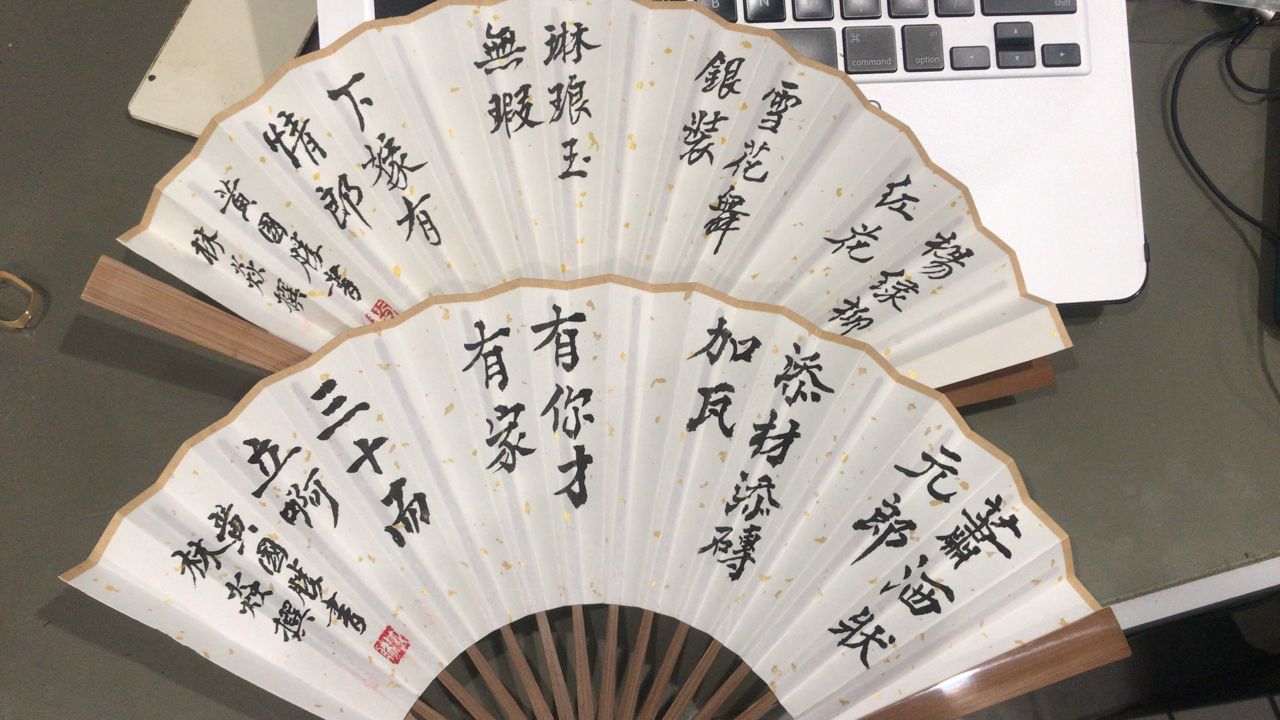 B N M
shift
⌘
command
alt
option
楊綠柳
紅花
雪花舞
銀裝
琳琅玉
無瑕
下嫁有
情郎
黃國陵書
林焱撰
蕭洒狀
元郎
添材添磚
加瓦
有你才
有家
三十而
立啊
黃國陵書
林焱撰